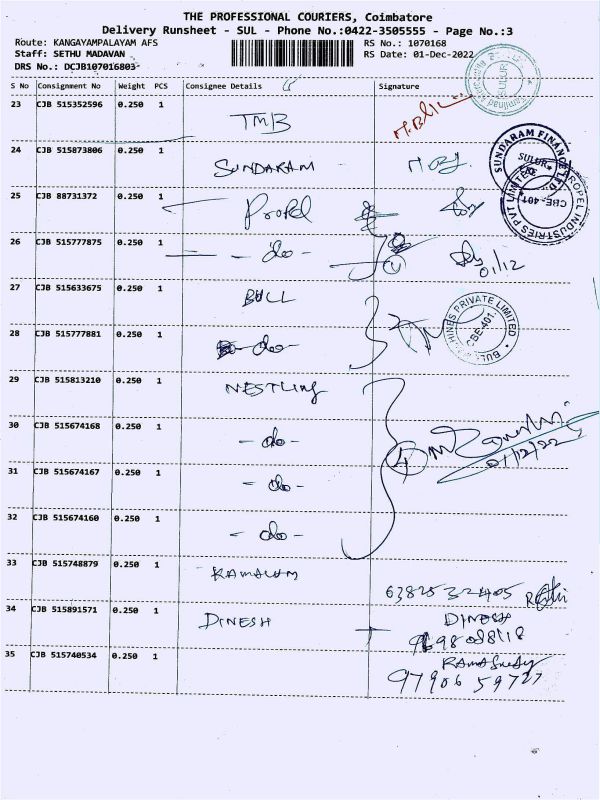 THE PROFESSIONAL COURIERS, Coimbatore
Delivery Runsheet - SUL - Phone No.:0422-3505555 - Page No.:3
Route: KANGAYAMPALAYAM AFS
RS No.: 1070168
Staff: SETHU MADAVAN
RS Date: 01-Dec-2022
DRS No.: DCJB107016803
S No Consignment No Weight PCS Consignee Details Signature
23 CJB 515352596 0.250 1 TMB
24 CJB 515873806 0.250 1 SUNDARAM
SUNDARAM FINANCE LTD.
SULUR
25 CJB 88731372 0.250 1 Propel
PROPEL INDUSTRIES PVT LIMITED
CBE-401
26 CJB 515777875 0.250 1 - do -
01/12
27 CJB 515633675 0.250 1 BULL
PRIVATE LIMITED
CBE-401.
28 CJB 515777881 0.250 1 - do -
29 CJB 515813210 0.250 1 NESTLING
30 CJB 515674168 0.250 1 - do -
01/12/22
31 CJB 515674167 0.250 1 - do -
32 CJB 515674160 0.250 1 - do -
33 CJB 515748879 0.250 1
34 CJB 515891571 0.250 1 DINESH DINESH
35 CJB 515740534 0.250 1
97906 59727